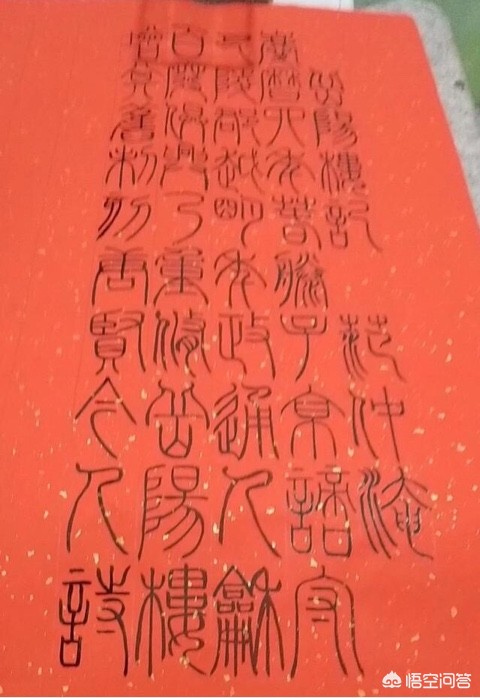 岳陽樓記 范仲淹
慶曆四年春滕子京謫守
巴陵郡越明年政通人龢
百廢俱興乃重修岳陽樓
增其舊制刻唐賢今人詩
悟空问答